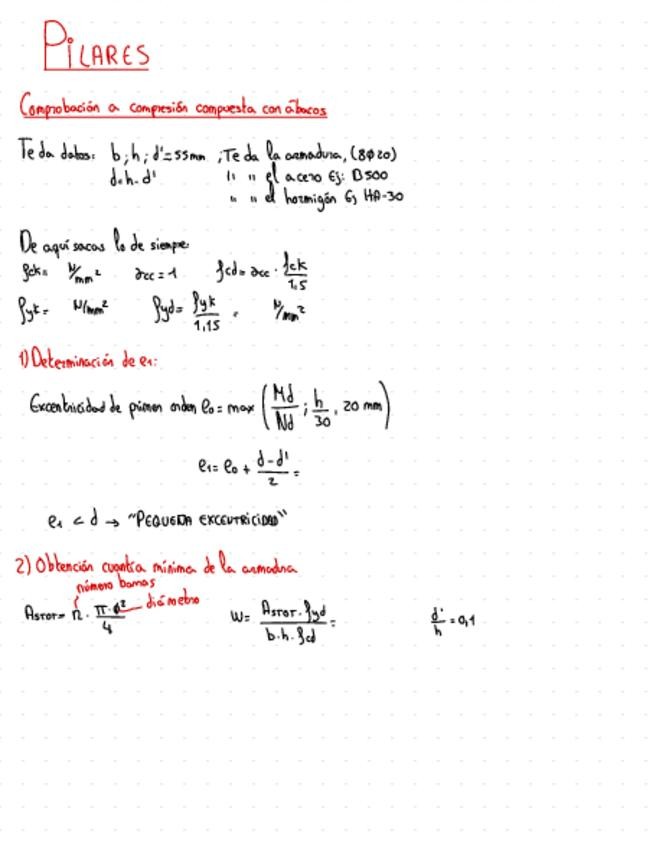 PILARES
Comprobación a compresión compuesta con ábacos
Te da datos: b; h; d'=55mm ; Te da la armadura, (8Ø20)
d=h-d' " " el acero Ej: B500
" " el hormigón Ej HA-30
De aquí sacas lo de siempre:
fck= N/mm² αcc=1 fcd=αcc · fck/1.5
fyk= N/mm² fyd= fyk/1,15 = N/mm²
1) Determinación de e1:
Excentricidad de primer orden e0=max (Md/Nd ; h/30 , 20 mm)
e1= e0 + d-d'/2 =
e1 < d → "PEQUEÑA EXCENTRICIDAD"
2) Obtención cuantía mínima de la armadura
número barras
Astot= n · π·ø²/4 diámetro W= Astot·fyd/b·h·fcd = d'/h =0,1